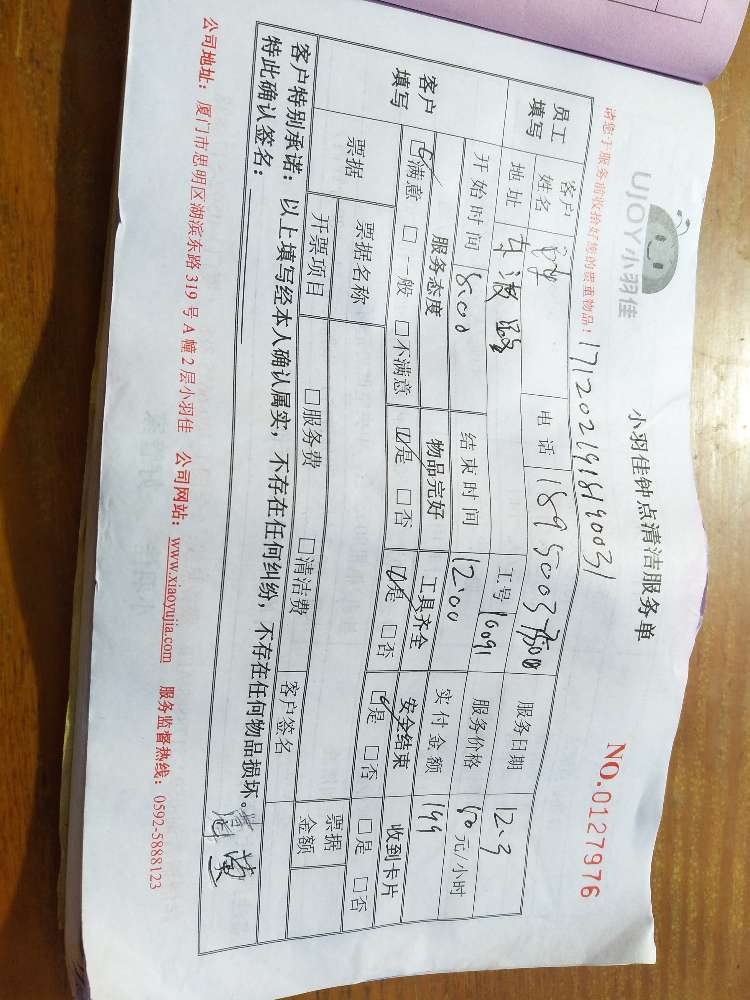 UJOY小羽佳
小羽佳钟点清洁服务单
NO.0127976
请您于服务前收拾好您的贵重物品！
171202191819 0031
员工填写 客户姓名 电话 服务日期 12.3
地址 工号 10091 服务价格 50元/小时
客户填写 开始时间 8:00 结束时间 12:00 实付金额 199
服务态度 物品完好 工具齐全 安全结束 收到卡片
☑满意 □一般 □不满意 ☑是 □否 ☑是 □否 ☑是 □否 □是 □否
票据 票据名称 票据金额
开票项目 □服务费 □清洁费 客户签名
客户特别承诺：以上填写经本人确认属实，不存在任何纠纷，不存在任何物品损坏。
特此确认签名：
公司地址：厦门市思明区湖滨东路319号A幢2层小羽佳 公司网站：www.xiaoyujia.com 服务监督热线：0592-5888123